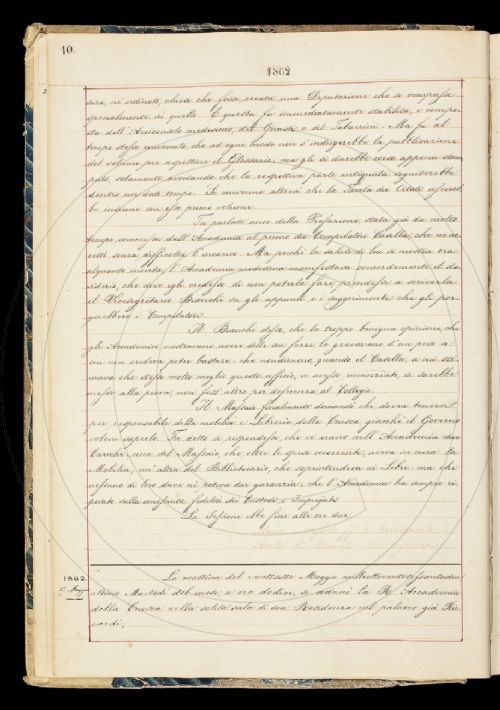 10.
1862
sura, nè ordinato, chiese che fosse creata una Deputazione che si occupasse
specialmente di quello. E questa fu immediatamente stabilita, e compo-
sta dell'Arciconsolo medesimo, del e del Tabarrini. Ma fu al
tempo stesso convenuto, che ad ogni modo non s'indugerebbe la pubblicazione
del volume per aspettare il Glossario: ma gli si darebbe corso appena stam-
pato, solamente avvisando che la rispettiva parte antiquata seguiterebbe
dentro un dato tempo. Si convenne altresì che la Tavola dei Citati uscireb-
be insieme con esso primo volume.
Fu parlato anco della Prefazione, stata già da molto
tempo commessa dall'Accademia al primo dei Compilatori Casella, che ne ac-
cettò senza difficoltà l'incarico. Ma poichè la salute di lui si mostra ora
alquanto incerta, l'Accademia medesima manifestava concordemente il de-
siderio, che dove egli credesse di non poterla fare, prendesse a scriverla
il Vicesegretario Bianchi su gli appunti e i suggerimenti che gli por-
gerebbero i Compilatori.
Il Bianchi disse, che la troppo benigna opinione, che
gli Accademici mostravano avere delle sue forze, lo gravavano d'un peso a
cui non credeva poter bastare: che nondimeno, quando il Casella, a cui sti-
mava che stesse molto meglio questo ufficio, vi avesse rinunziato, si sarebbe
messo alla prova, non foss'altro per deferenza al Collegio.
Il Massaio finalmente domandò chi doveva tenersi
per responsabile della mobilia e Libreria della Crusca, giacchè il Governo
voleva saperlo. Fu detto si rispondesse che vi erano nell'Accademia due
Cariche, una del Massaio, che oltre le spese occorrenti, aveva in cura la
Mobilia, un'altra del Bibliotecario, che soprintendeva ai Libri: ma che
nessuno di loro dava nè poteva dar garanzia: che l'Accademia ha sempre ri-
posato sulla conosciuta fedeltà dei Custodi e Impiegati.
La Sessione ebbe fine alle ore due.
1862
27 Maggio
La mattina del ventisette Maggio milleottocentosessantadue
ultimo Martedì del mese, a ore dodici, si adunò la R. Accademia
della Crusca nella solita sala di sua Residenza nel palazzo già Ric-
cardi;